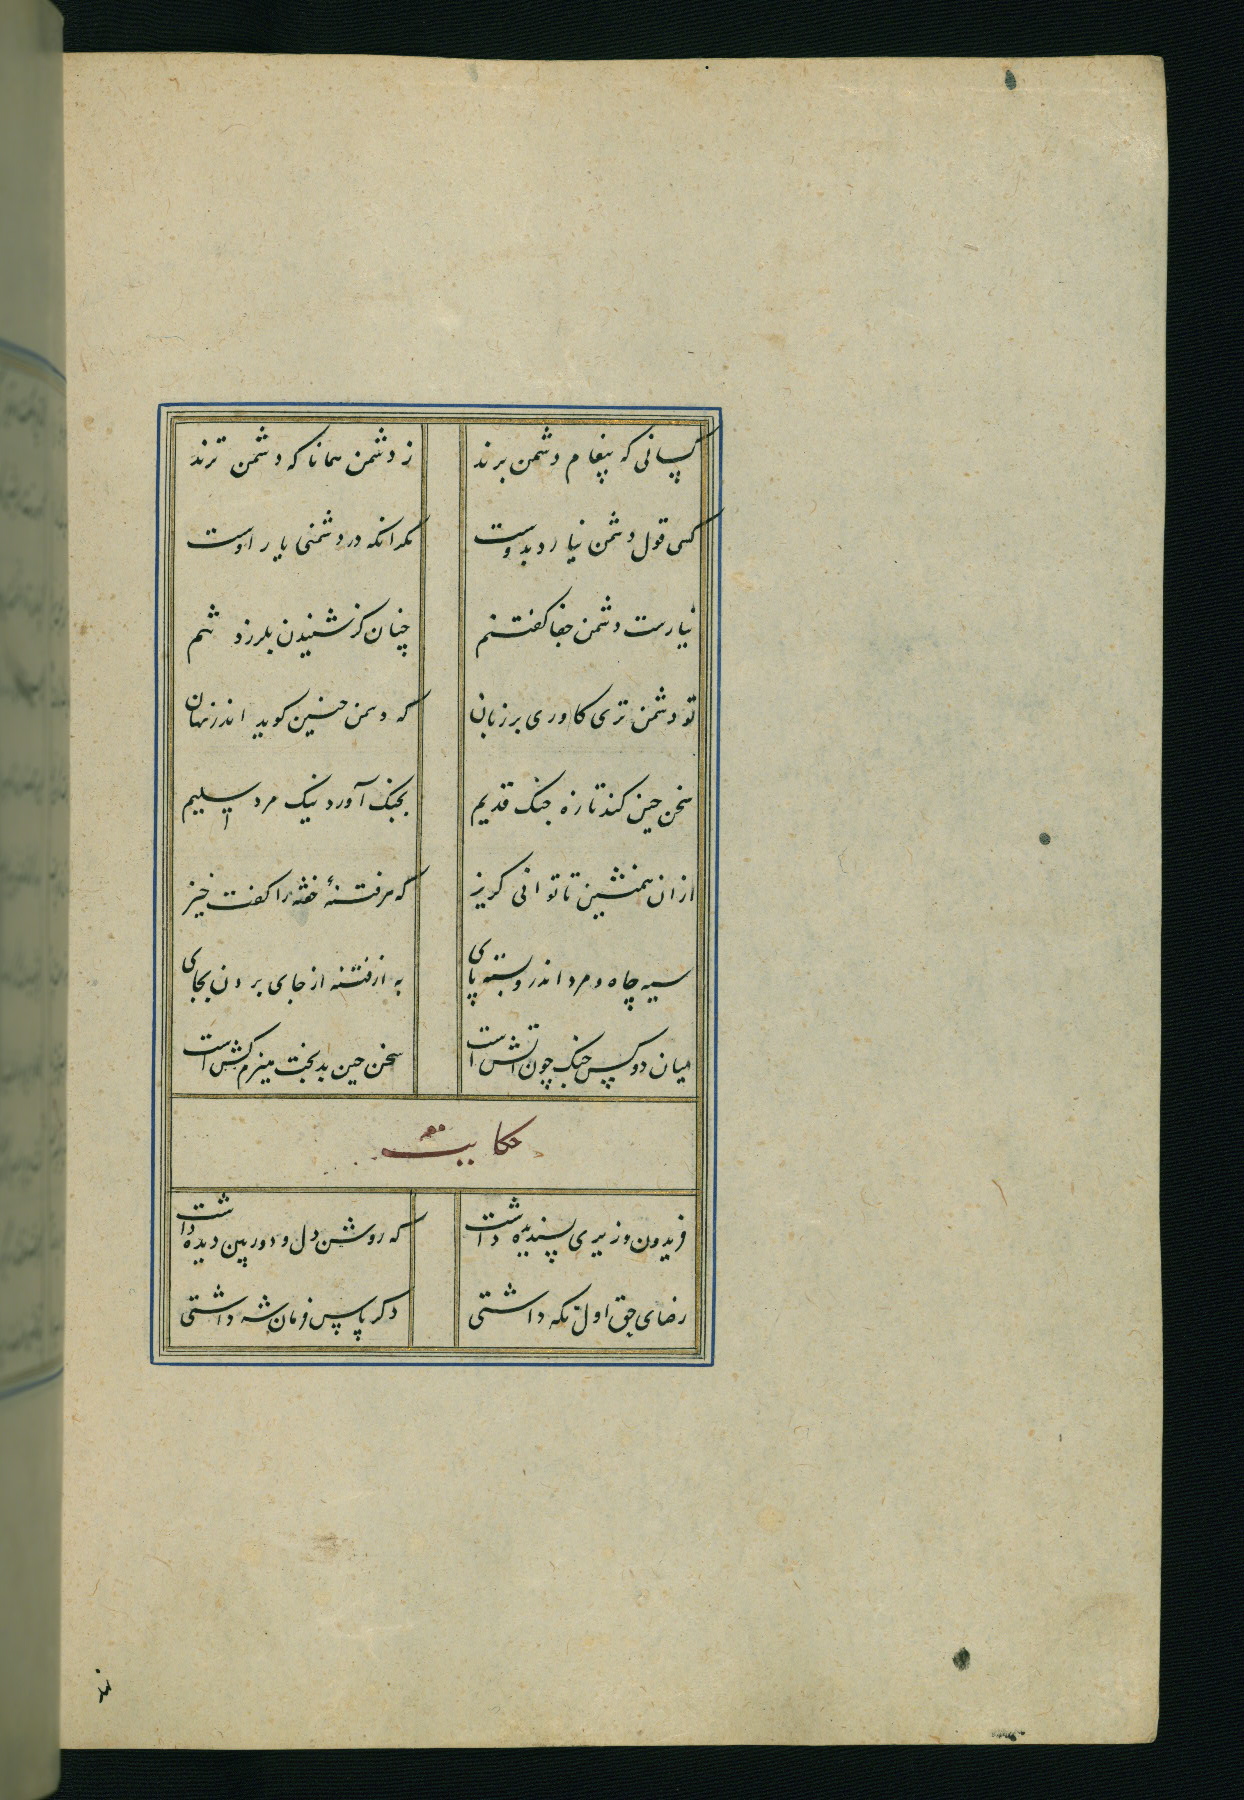 کسانی که پیغام دشمن برند ز دشمن همانا که دشمن ترند
کسی قول دشمن نیارد بدوست مکر انکه در دشمنی یار اوست
نیارست دشمن جفا کفتنم چنان کز شنیدن بلرزد تنم
تو دشمن تری کاوری بر زبان که دشمن چنین کوید اندر نهان
سخن چین کند تازه جنک قدیم بجنک آورد نیک مرد سلیم
ازان همنشین تا توانی کریز که مر فتنهٔ خفته را کفت خیز
سیه چاه و مرد اندرو بسته پای به از فتنه از جای بردن بجای
میان دو کس جنک چون آتش است سخن چین بدبخت هیزم کش است
حکایت
فریدون وزیری پسندیده داشت که روشن دل و دوربین دیده داشت
رضای حق اول نکه داشتی دکر پاس فرمان شه داشتی